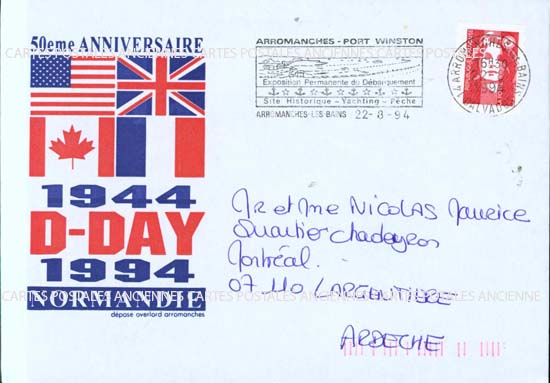 50eme ANNIVERSAIRE
1944
D-DAY
1994
NORMANDIE
dépose overlord arromanches
ARROMANCHES - PORT WINSTON
Exposition Permanente du Débarquement
Site Historique - Yachting - Pêche
ARROMANCHES-LES-BAINS 22-8-94
Mr et Me NICOLAS Maurice
Quartier
Montréal.
07110 LARGENTIERE
ARDECHE
CARTES POSTALES ANCIENNES CARTES POSTALES ANCIENNES CARTES POSTALES ANCIENNES
CARTES POSTALES ANCIENNES CARTES POSTALES ANCIENNES CARTES POSTALES ANCIENNE